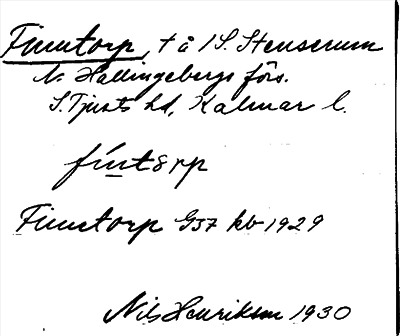 Finntorp, t å /S. Stenserum
N. Hallingebergs förs.
S. Tjusts hd, Kalmar l.
fíntərp
Finntorp G57 kb 1929
Nils Henrikson 1930